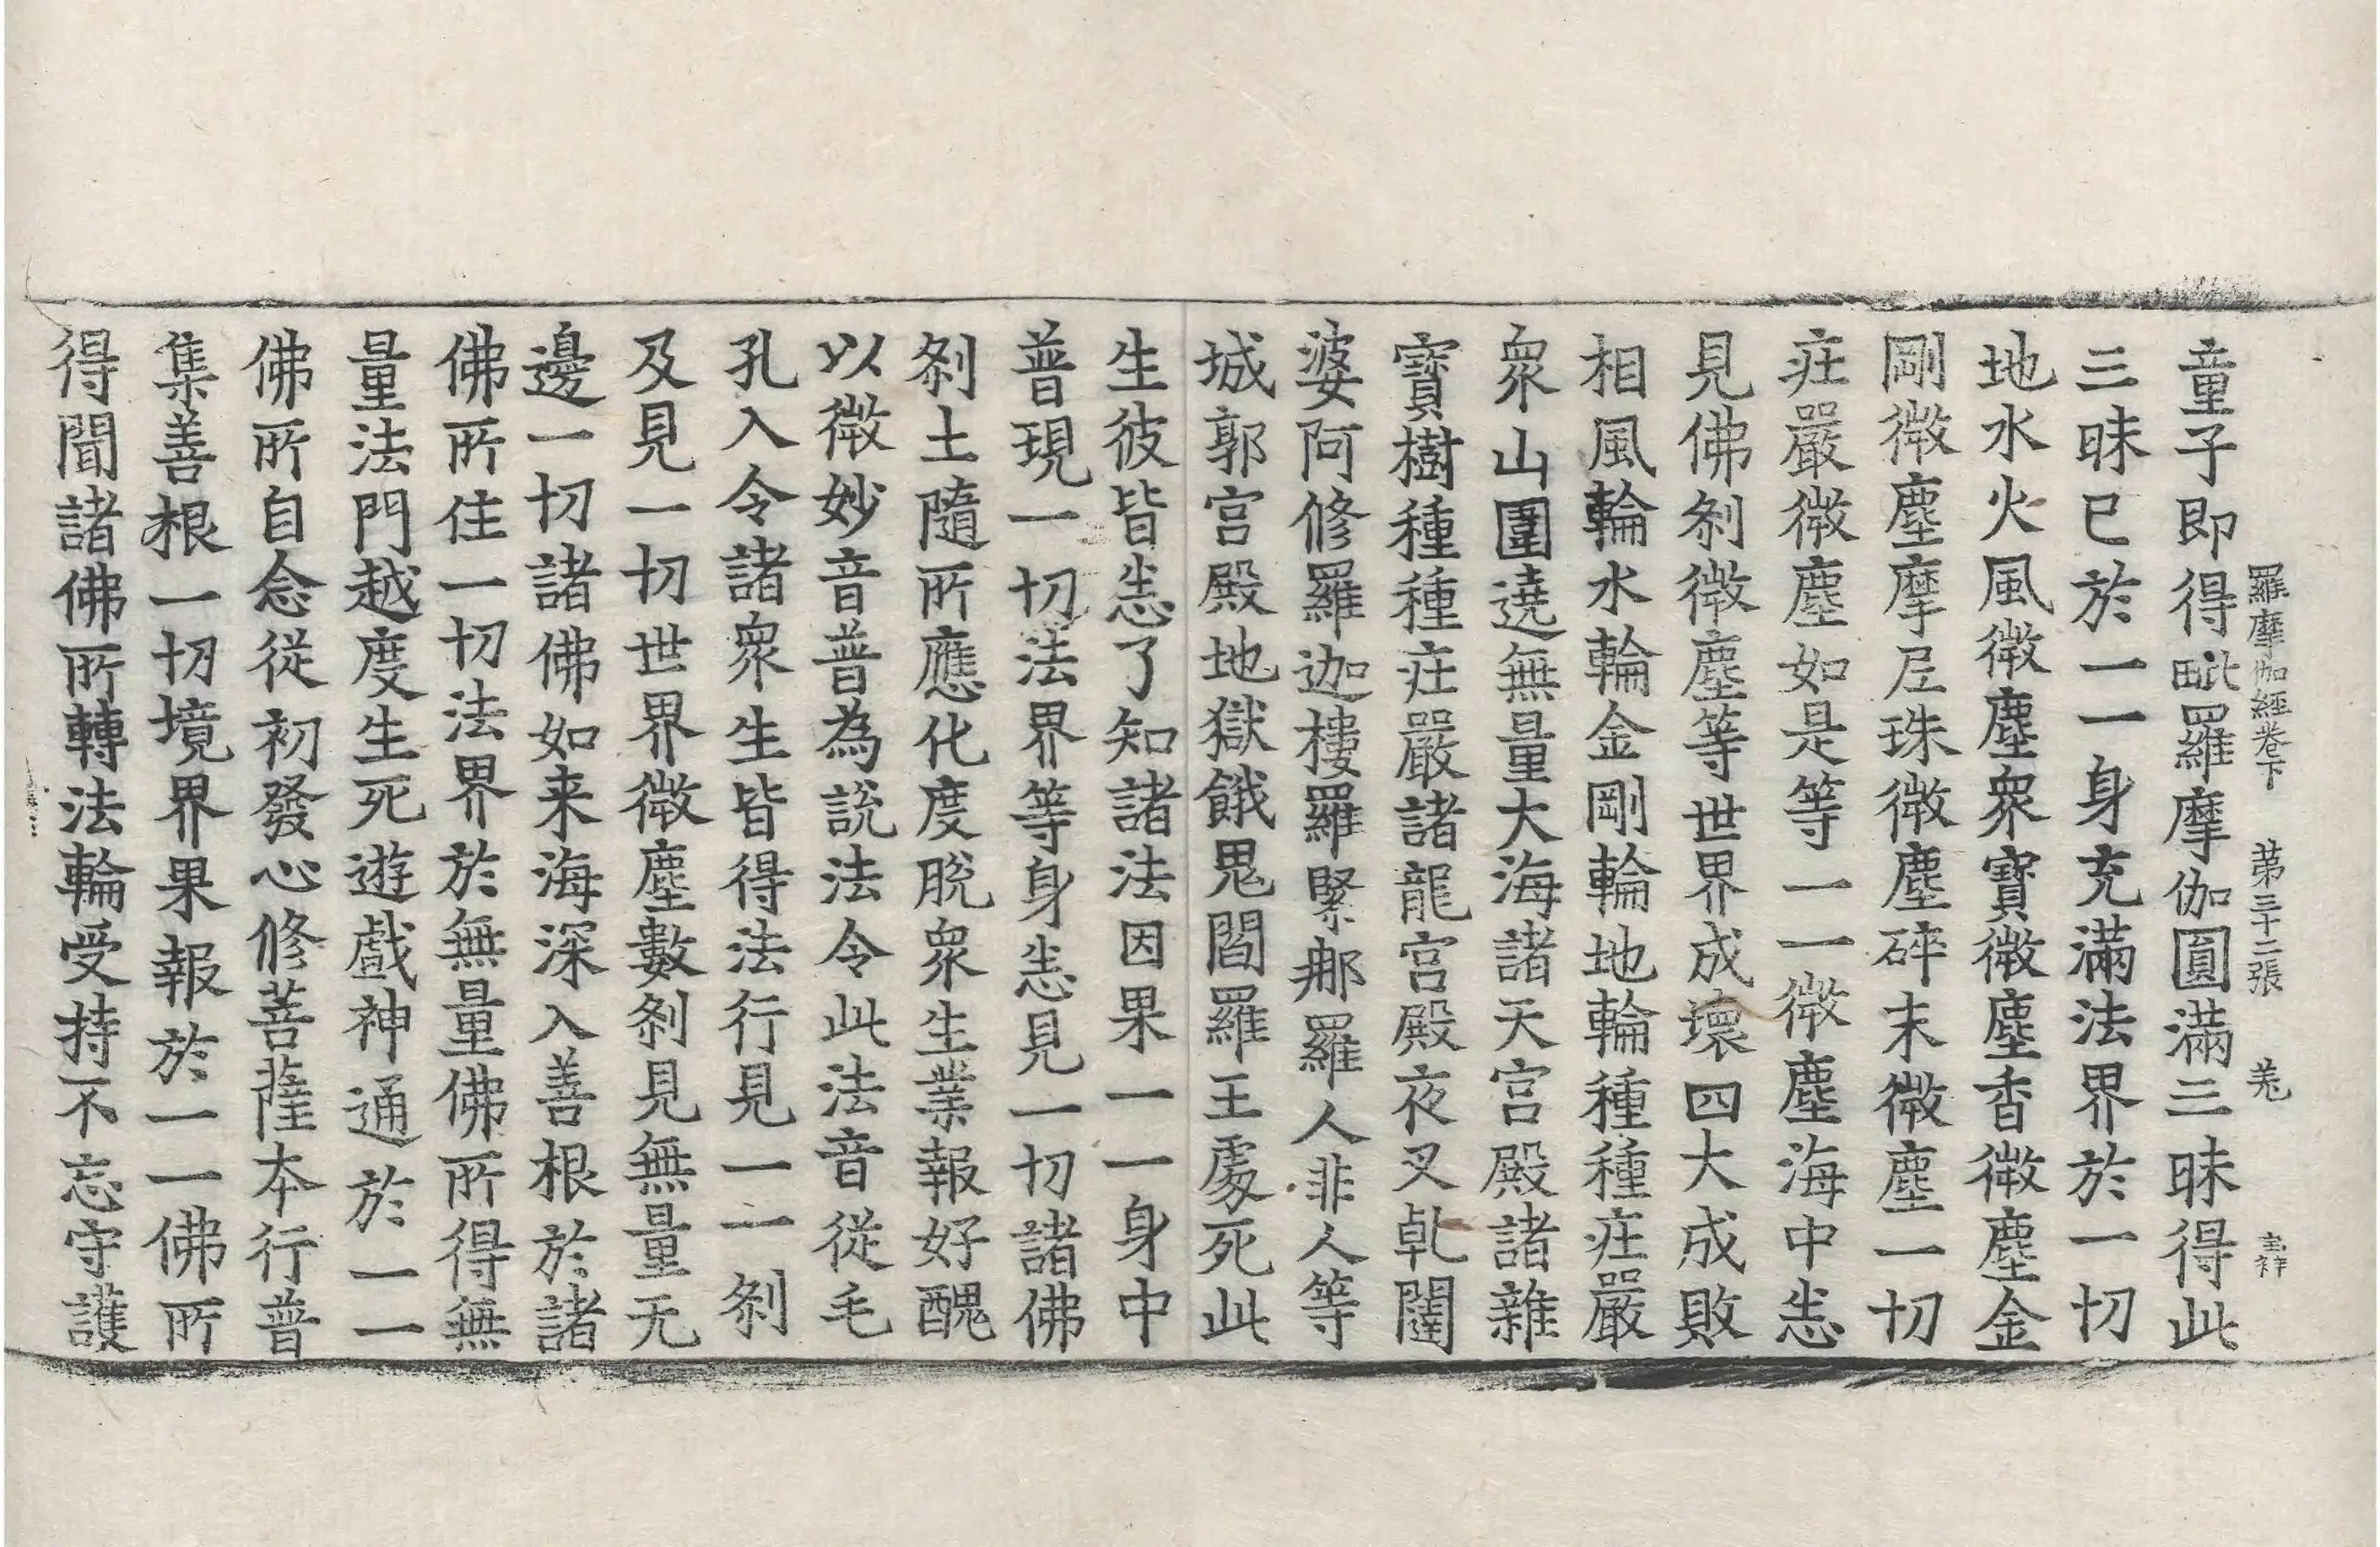 羅摩伽經卷下　第三十二張　羗　宝祥
童子即得毗羅摩伽圓滿三昧得此
三昧已於一一身充滿法界於一切
地水火風微塵衆寶微塵香微塵金
剛微塵摩尼珠微塵碎末微塵一切
莊嚴微塵如是等一一微塵海中悉
見佛刹微塵等世界成壞四大成敗
相風輪水輪金剛輪地輪種種莊嚴
衆山圍遶無量大海諸天宮殿諸雜
寶樹種種莊嚴諸龍宮殿夜叉乹闥
婆阿修羅迦樓羅緊那羅人非人等
城郭宮殿地獄餓鬼閻羅王處死此
生彼皆悉了知諸法因果一一身中
普現一切法界等身悉見一切諸佛
刹土隨所應化度脫衆生業報好醜
以微妙音普為說法令此法音從毛
孔入令諸衆生皆得法行見一一刹
及見一切世界微塵數刹見無量无
邊一切諸佛如来海深入善根於諸
佛所住一切法界於無量佛所得無
量法門越度生死遊戲神通於一一
佛所自念從初發心修菩薩本行普
集善根一切境界果報於一一佛所
得聞諸佛所轉法輪受持不忘守護